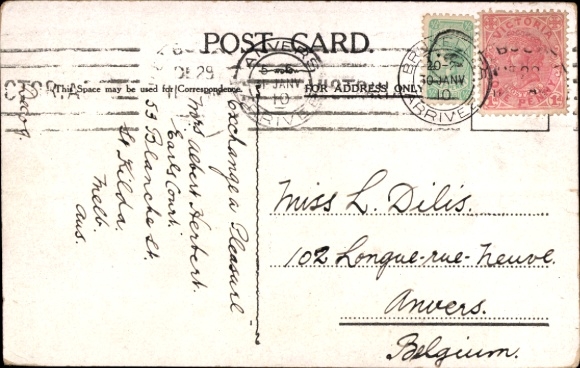 POST CARD.
This Space may be used for Correspondence.
FOR ADDRESS ONLY
VICTORIA
ANVERS
5-6
JANV
10
DE 29
BRU
20-
30 JANV
10
ARRIVEE
exchange a Pleasure
Mrs Albert Herbert.
Earls Court.
53 Blanche St.
St Kilda.
Melb.
Aus.
Miss L. Dilis.
102 Longue-rue-Neuve.
Anvers.
Belgium.